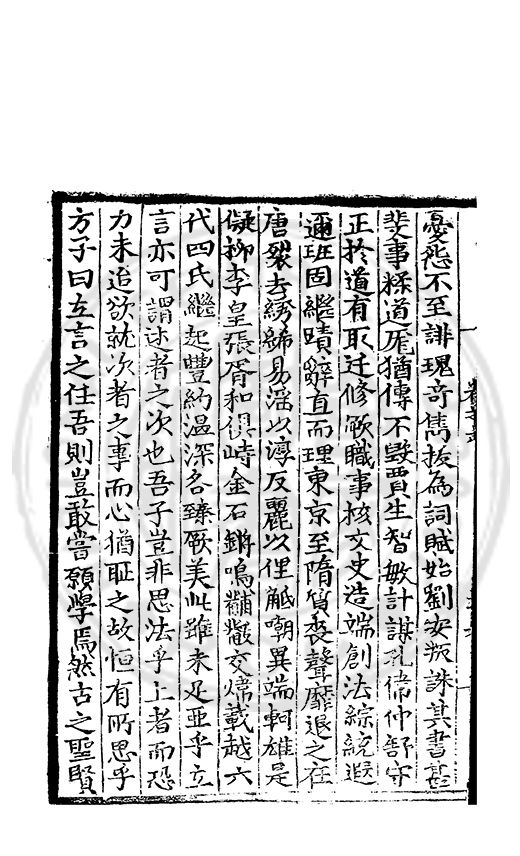 憂怨不至誹瑰奇雋拔為詞賦始劉安叛誅其書甚
斐事糅道厖猶傳不毀賈生智敏計謀孔偉仲舒守
正於道有取迁修厥職事核文史造端創法綜統遐
邇班固繼蹟辭直而理東京至隋質喪聲靡退之在
唐裂去綉絺易滛以淳反麗以俚觝嘲異端軻雄是
儗柳李皇張胥和俱峙金石鏘鳴黼黻交煒載越六
代四氏繼起豐約温深各臻厥美此雖未足亞乎立
言亦可謂述者之次也吾子豈非思法乎上者而恐
力未追欲就次者之事而心猶耻之故恒有所思乎
方子曰立言之任吾則豈敢嘗願學焉然古之聖賢